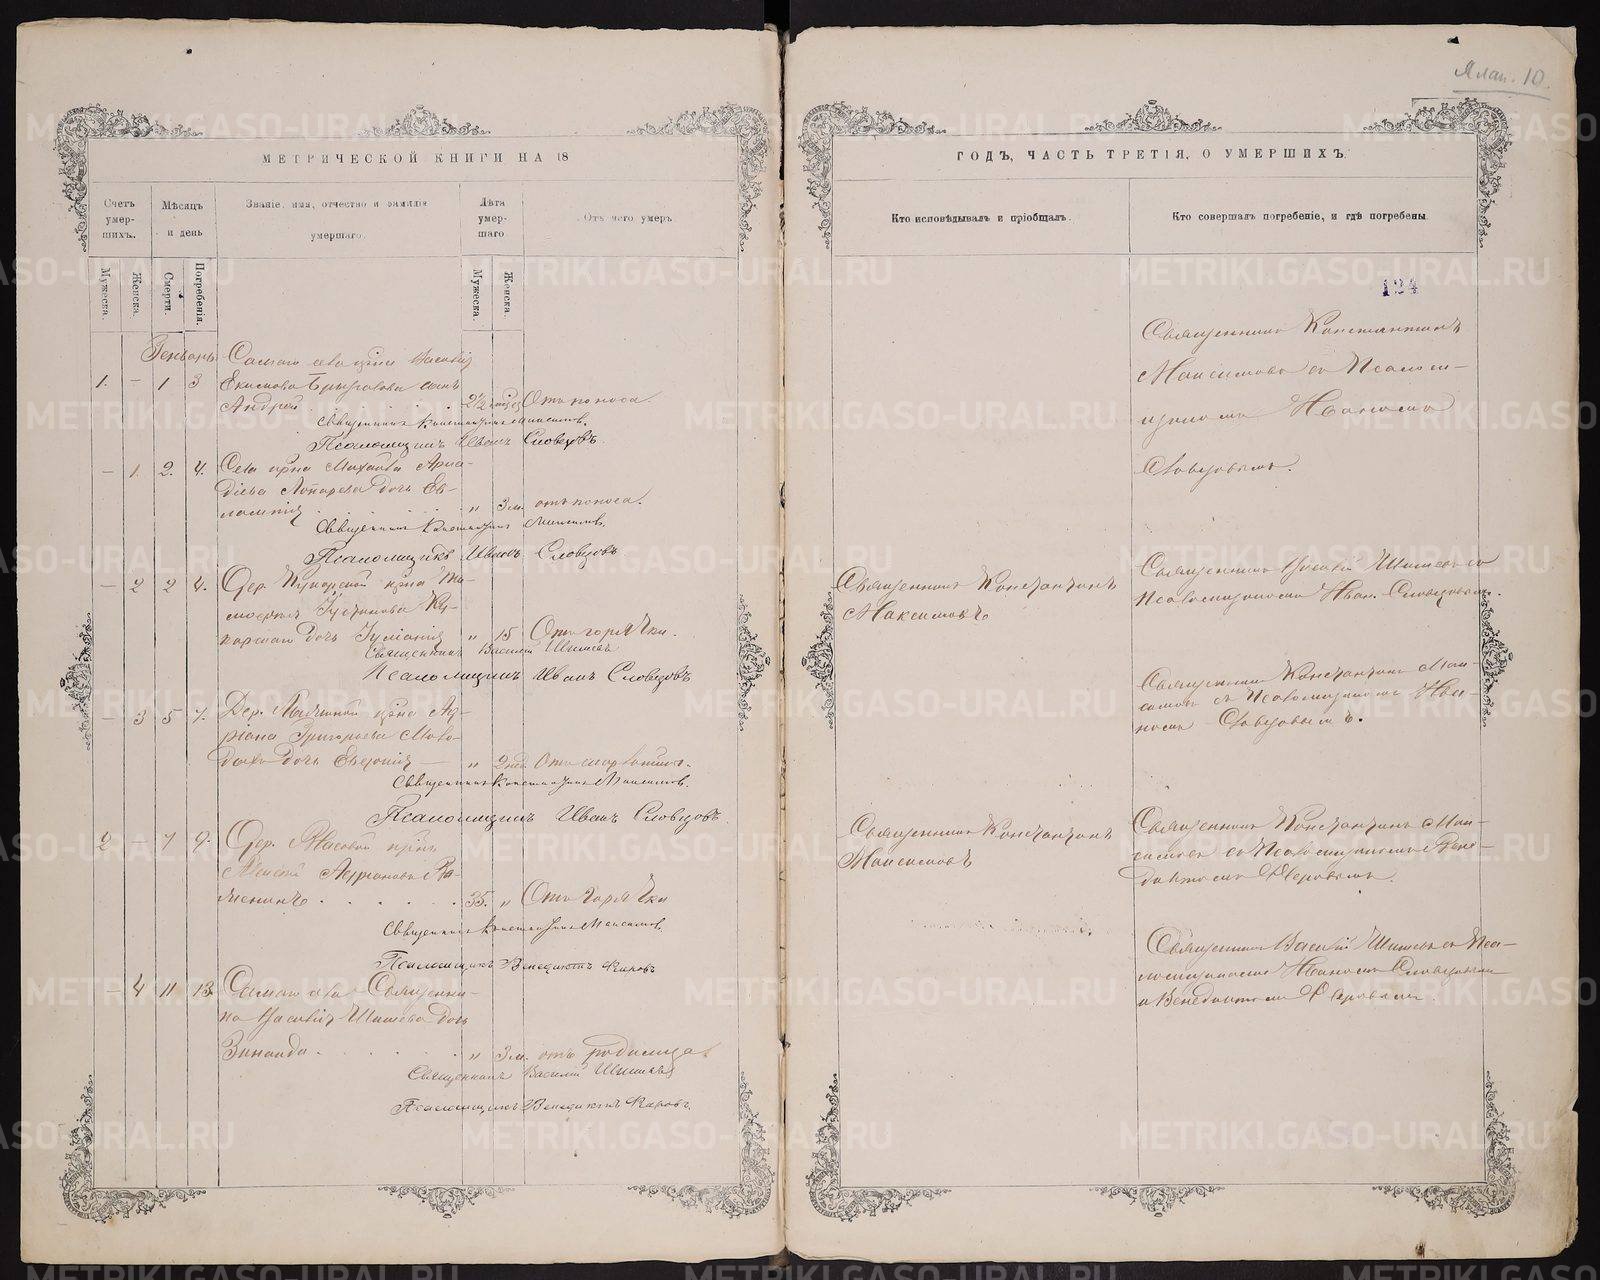 Млан. 10
МЕТРИЧЕСКОЙ КНИГИ НА 18
Счетъ умер-шихъ.
Мѣсяцъ и день
Званіе, имя, отчество и фамилія умершаго.
Лѣта умер-шаго
Отъ чего умеръ
Мужеска.
Женска.
Смерти.
Погребенія.
Мужеска.
Женска.
Генварь
1. – 1 3
Самаго села крна Василія
Екимова сынъ
Андрей 2½ Отъ поноса.
Священникъ Константинъ Максимовъ.
Псаломщикъ Иванъ Словцовъ.
– 1. 2. 4.
Села крна Михаила Арка-
діева дочь Ев-
лампія " 3 м. отъ поноса.
Священникъ Константинъ Максимовъ.
Псаломщикъ Иванъ Словцовъ
– 2 2 4.
Дер. крна Ти-
дочь Іуліанія " 15 Отъ горячки.
Священникъ Василій Шишевъ
Псаломщикъ Иванъ Словцовъ
– 3 5 7.
Дер. крна Ад-
ріана Григорьева
дочь Евдокія " 2 нед. Отъ
Священникъ Константинъ Максимовъ.
Псаломщикъ Иванъ Словцовъ
2 – 7 9.
Дер. крнъ
Андріановъ
35. " Отъ горячки
Священникъ Константинъ Максимовъ.
Псаломщикъ Венедиктъ Флеровъ
– 4 11 13
Самаго села Священни-
ка Василія Шишева дочь
Зинаида " 3 м. отъ родимца.
Священникъ Василій Шишевъ
Псаломщикъ Венедиктъ Флеровъ.
ГОДЪ, ЧАСТЬ ТРЕТІЯ, О УМЕРШИХЪ.
Кто исповѣдывалъ и пріобщалъ.
Кто совершалъ погребеніе, и гдѣ погребены.
124
Священникъ Константинъ
Максимовъ съ Псалом-
щикомъ Иваномъ
Словцовымъ.
Священникъ Константинъ
Максимовъ
Священникъ Василій Шишевъ со
Псаломщикомъ Иван. Словцовымъ.
Священникъ Константинъ Мак-
симовъ съ Псаломщикомъ Ива-
номъ Словцовымъ.
Священникъ Константинъ
Максимовъ
Священникъ Константинъ Мак-
симовъ со Псаломщикомъ Вене-
диктомъ Флеровымъ.
Священникъ Василій Шишевъ съ Пса-
ломщикомъ Иваномъ Словцовымъ
и Венедиктомъ Флеровымъ.
METRIKI.GASO-URAL.RU